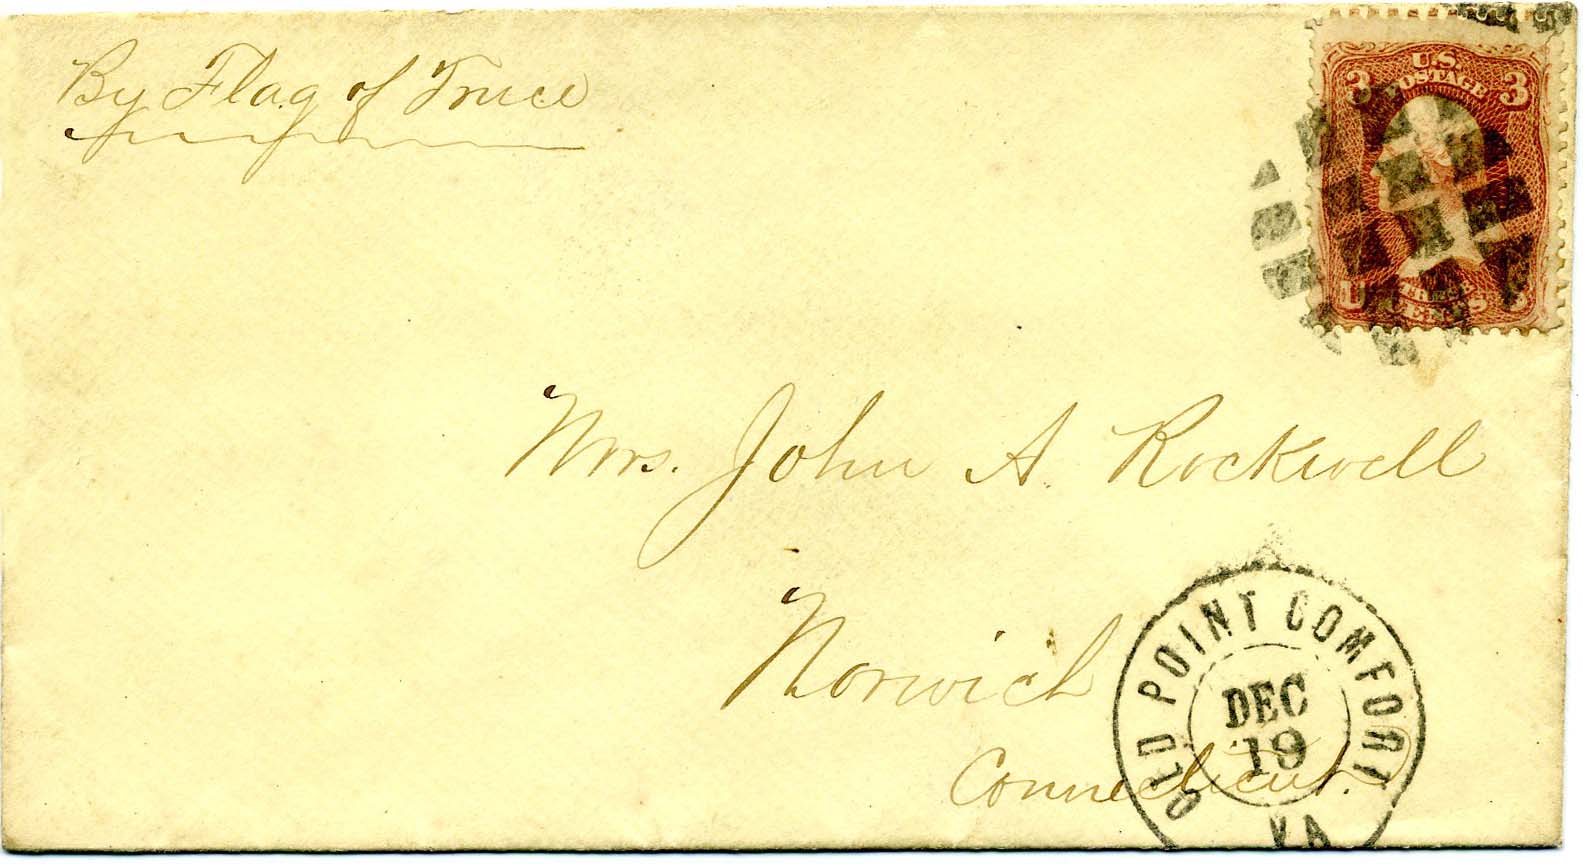 By Flag of Truce
3 U.S. POSTAGE 3
THREE
CENTS
Mrs. John A. Rockwell
Norwich
Connecticut.
OLD POINT COMFORT
DEC
19
VA